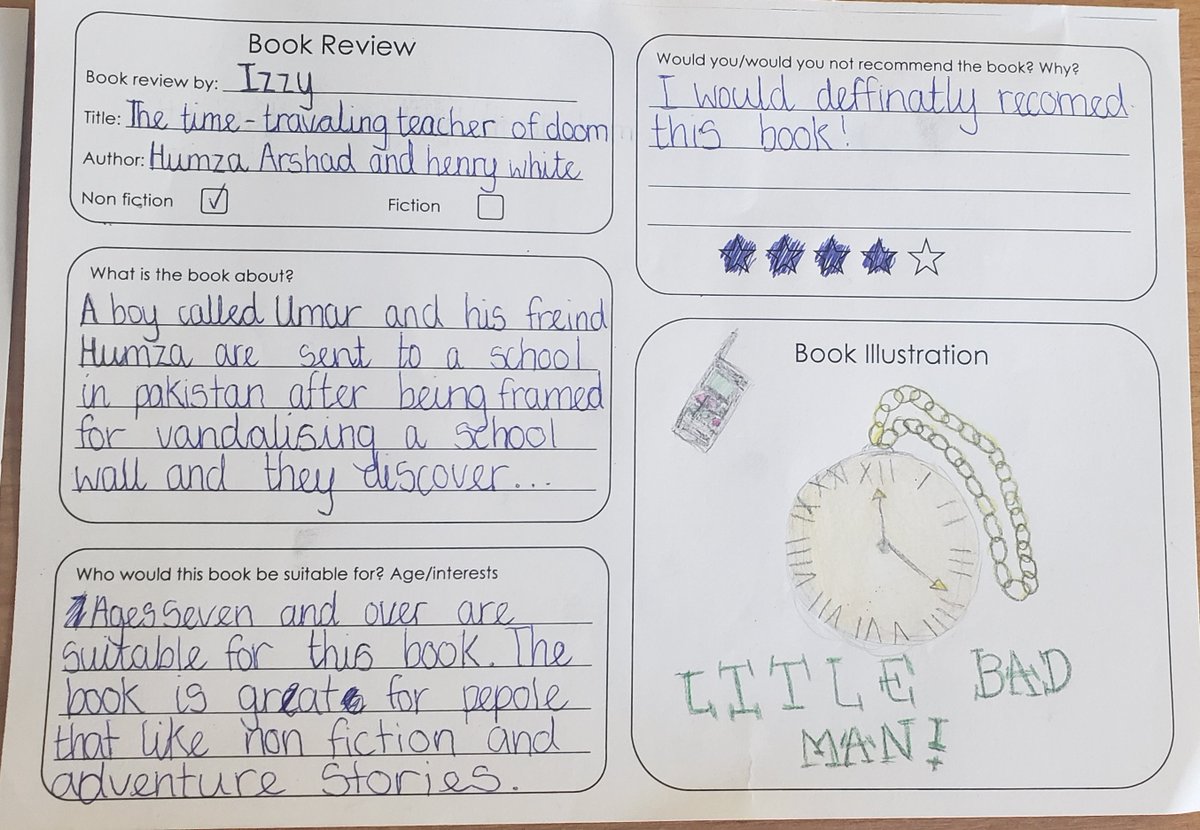 Book Review
Book review by: Izzy
Title: The time-travaling teacher of doom
Author: Humza Arshad and henry white
Non fiction ✓ Fiction
What is the book about?
A boy called Umar and his freind
Humza are sent to a school
in pakistan after being framed
for vandalising a school
wall and they discover...
Who would this book be suitable for? Age/interests
Ages seven and over are
suitable for this book. The
book is great for pepole
that like non fiction and
adventure stories.
Would you/would you not recommend the book? Why?
I would deffinatly recomed
this book!
Book Illustration
LITTLE BAD
MAN!